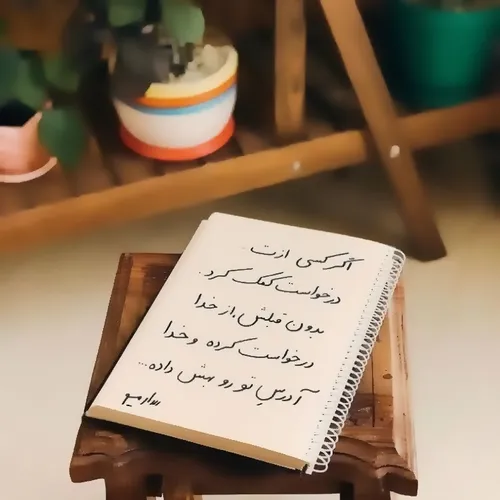 اگر کسی ازت
درخواست کمک کرد.
بدون قبلش، از خدا
درخواست کرده و خدا
آدرسِ تو رو بهش داده...